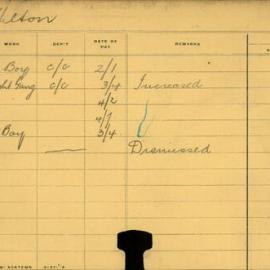 Hilton
WORK DEP'T RATE OF PAY REMARKS
Boy c/c 2/1
Gang c/c 3/4 Increased
4/2
4/7
Boy 3/4
Dismissed